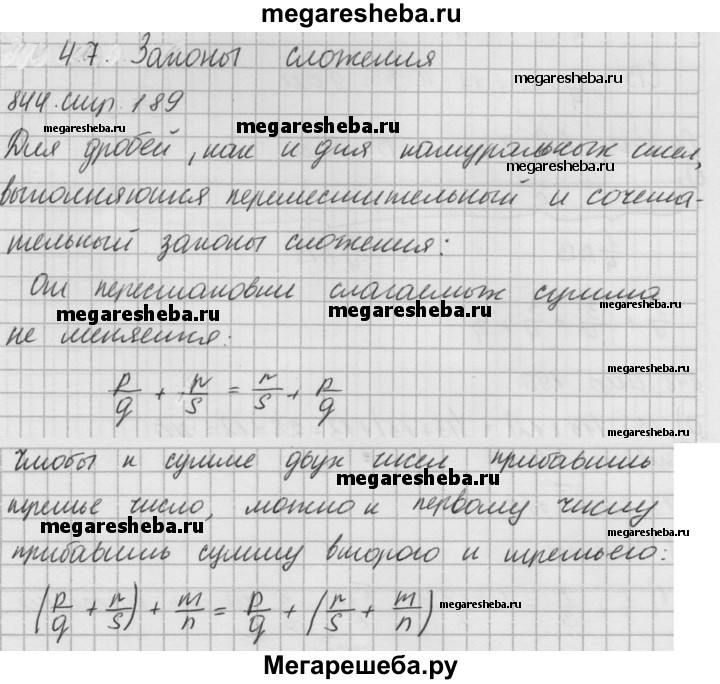 megaresheba.ru
4.7. Законы сложения
megaresheba.ru
844.стр.189
megaresheba.ru megaresheba.ru
Для дробей, как и для натуральных чисел,
megaresheba.ru
выполняются переместительный и сочета-
тельный законы сложения:
От перестановки слагаемых сумма
megaresheba.ru megaresheba.ru megaresheba.ru
не меняется:
megaresheba.ru
p/q + r/s = r/s + p/q
megaresheba.ru
Чтобы к сумме двух чисел прибавить
megaresheba.ru
третье число, можно к первому числу
megaresheba.ru megaresheba.ru
прибавить сумму второго и третьего:
(p/q + r/s) + m/n = p/q + (r/s + m/n)
megaresheba.ru
Мегарешеба.ру